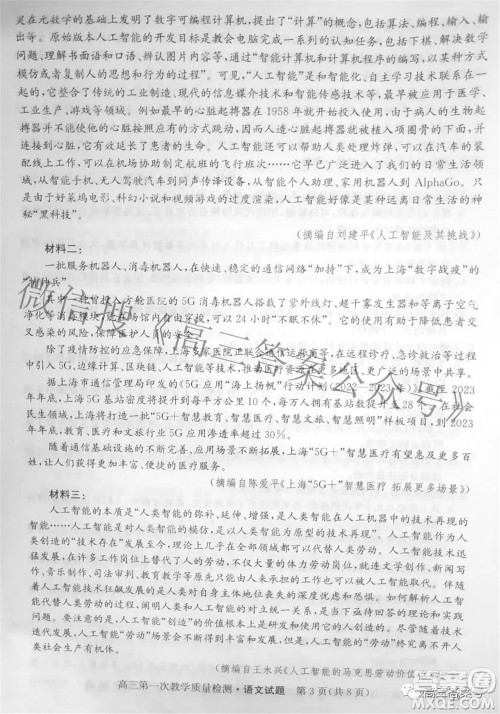 灵在元数学的基础上发明了数字可编程计算机，提出了“计算”的概念，包括算法、编程、输入、输
出等。原始版本人工智能的开发目标是教会电脑完成一系列的认知任务，包括下棋、解决数学
问题、理解书面语和口语、辨认图片内容等，通过“智能计算机和计算机程序的编写，以某种方式
模仿或者复制人的思想和行为的过程”。可见，“人工智能”是和智能化、自主学习技术联系在一
起的，它整合了传统的工业制造、现代的信息媒介技术和智能传感技术等，最早被应用于医学、
工业生产、游戏等领域。例如最早的心脏起搏器在1958年就开始使用，由于病人的生物起
搏器并不能使他的心脏按照应有的方式跳动，因而人造心脏起搏器就被植入项圈骨的下面，并
连接到心脏，它有效延长了患者的生命。人工智能还可以帮助人类处理爆炸，可以在汽车的装
配线上工作，可以在机场协助制定航班的飞行班次……它早已广泛进入了我们的日常生活领
域，从智能手机、无人驾驶汽车到同声传译设备，从智能个人助理、家用机器人到 AlphaGo。只
是由于好莱坞电影、科幻小说和视频游戏的过度渲染，人工智能好像是某种远离日常生活的神
秘“黑科技”。
（摘编自刘建平《人工智能及其挑战》）
材料二：
一批服务机器人、消毒机器人，在快速、稳定的通信网络“加持”下，成为上海“数字战疫”的
其中一种曾投入方舱医院的5G消毒机器人搭载了紫外线灯、超干雾发生器和等离子空气
净化等消毒模块，能在病房场所自由穿行，可以24小时“不眠不休”。它的使用有助于降低患者交
叉感染的风险，保障医护人员的安全。
除了疫情防控的应急保障，上海多家医院正在
程中引入5G、边缘计算、区块链、人工智能等技术，推动
据上海市通信管理局印发的《5G应用“海上扬帆”行动计划（2022—2023年）》，截至2023
年年底，上海5G基站密度将提升到每平方公里10个，每万人拥有基站数提升至28个。在社会
民生领域，上海将持续打造“5G+智慧教育、智慧医疗、智慧文旅、智慧照明”样板，到2023
年年底，教育、医疗和文旅行业5G应用渗透率超过30%。
随着通信基础设施的不断完善、应用场景不断拓展，上海“5G+”智慧医疗有望惠及更多百
姓，让人们获得更加丰富、便捷的医疗服务。
（摘编自陈爱平《上海“5G+”智慧医疗 拓展更多场景》）
材料三：
人工智能的本质是“人类智能的弥补、延伸、增强，是以人类智能在人工机器中的技术再现的
智能，是人类对人类智能的模仿，是以人类智能为原型的技术再现”。人工智能作为人类智
能的“技术存在”发展至今，理论上几乎在全部领域都可以代替人类劳动。人工智能技术迅
猛发展，在许多工作岗位上替代了人的劳动，不仅大量的体力劳动被自动化所代替，诸如新闻写
作、音乐制作、司法审判、教育教学等灵活的脑力劳动也可以被人工智能机器人所代替。伴随着
人工智能技术狂飙发展的是人类对自身主体地位丧失的深度忧虑和恐惧。如何解释人工智能
代替人类劳动的过程，阐明人类和人工智能的对立统一关系，是当下亟待回答的理论和实践问
题。要注意的是，人工智能“创造”的价值根本上是研发者和使用者价值创造的技术再现。因
此，人工智能“劳动”场景会不断得到丰富和发展，但并不会产生人类的劳动终结和自由丧失。
（摘编自王永兴《人工智能的马克思劳动价值
高三第一次教学质量检测·语文试题 第3页（共8页）
微信搜《高三答案公众号》